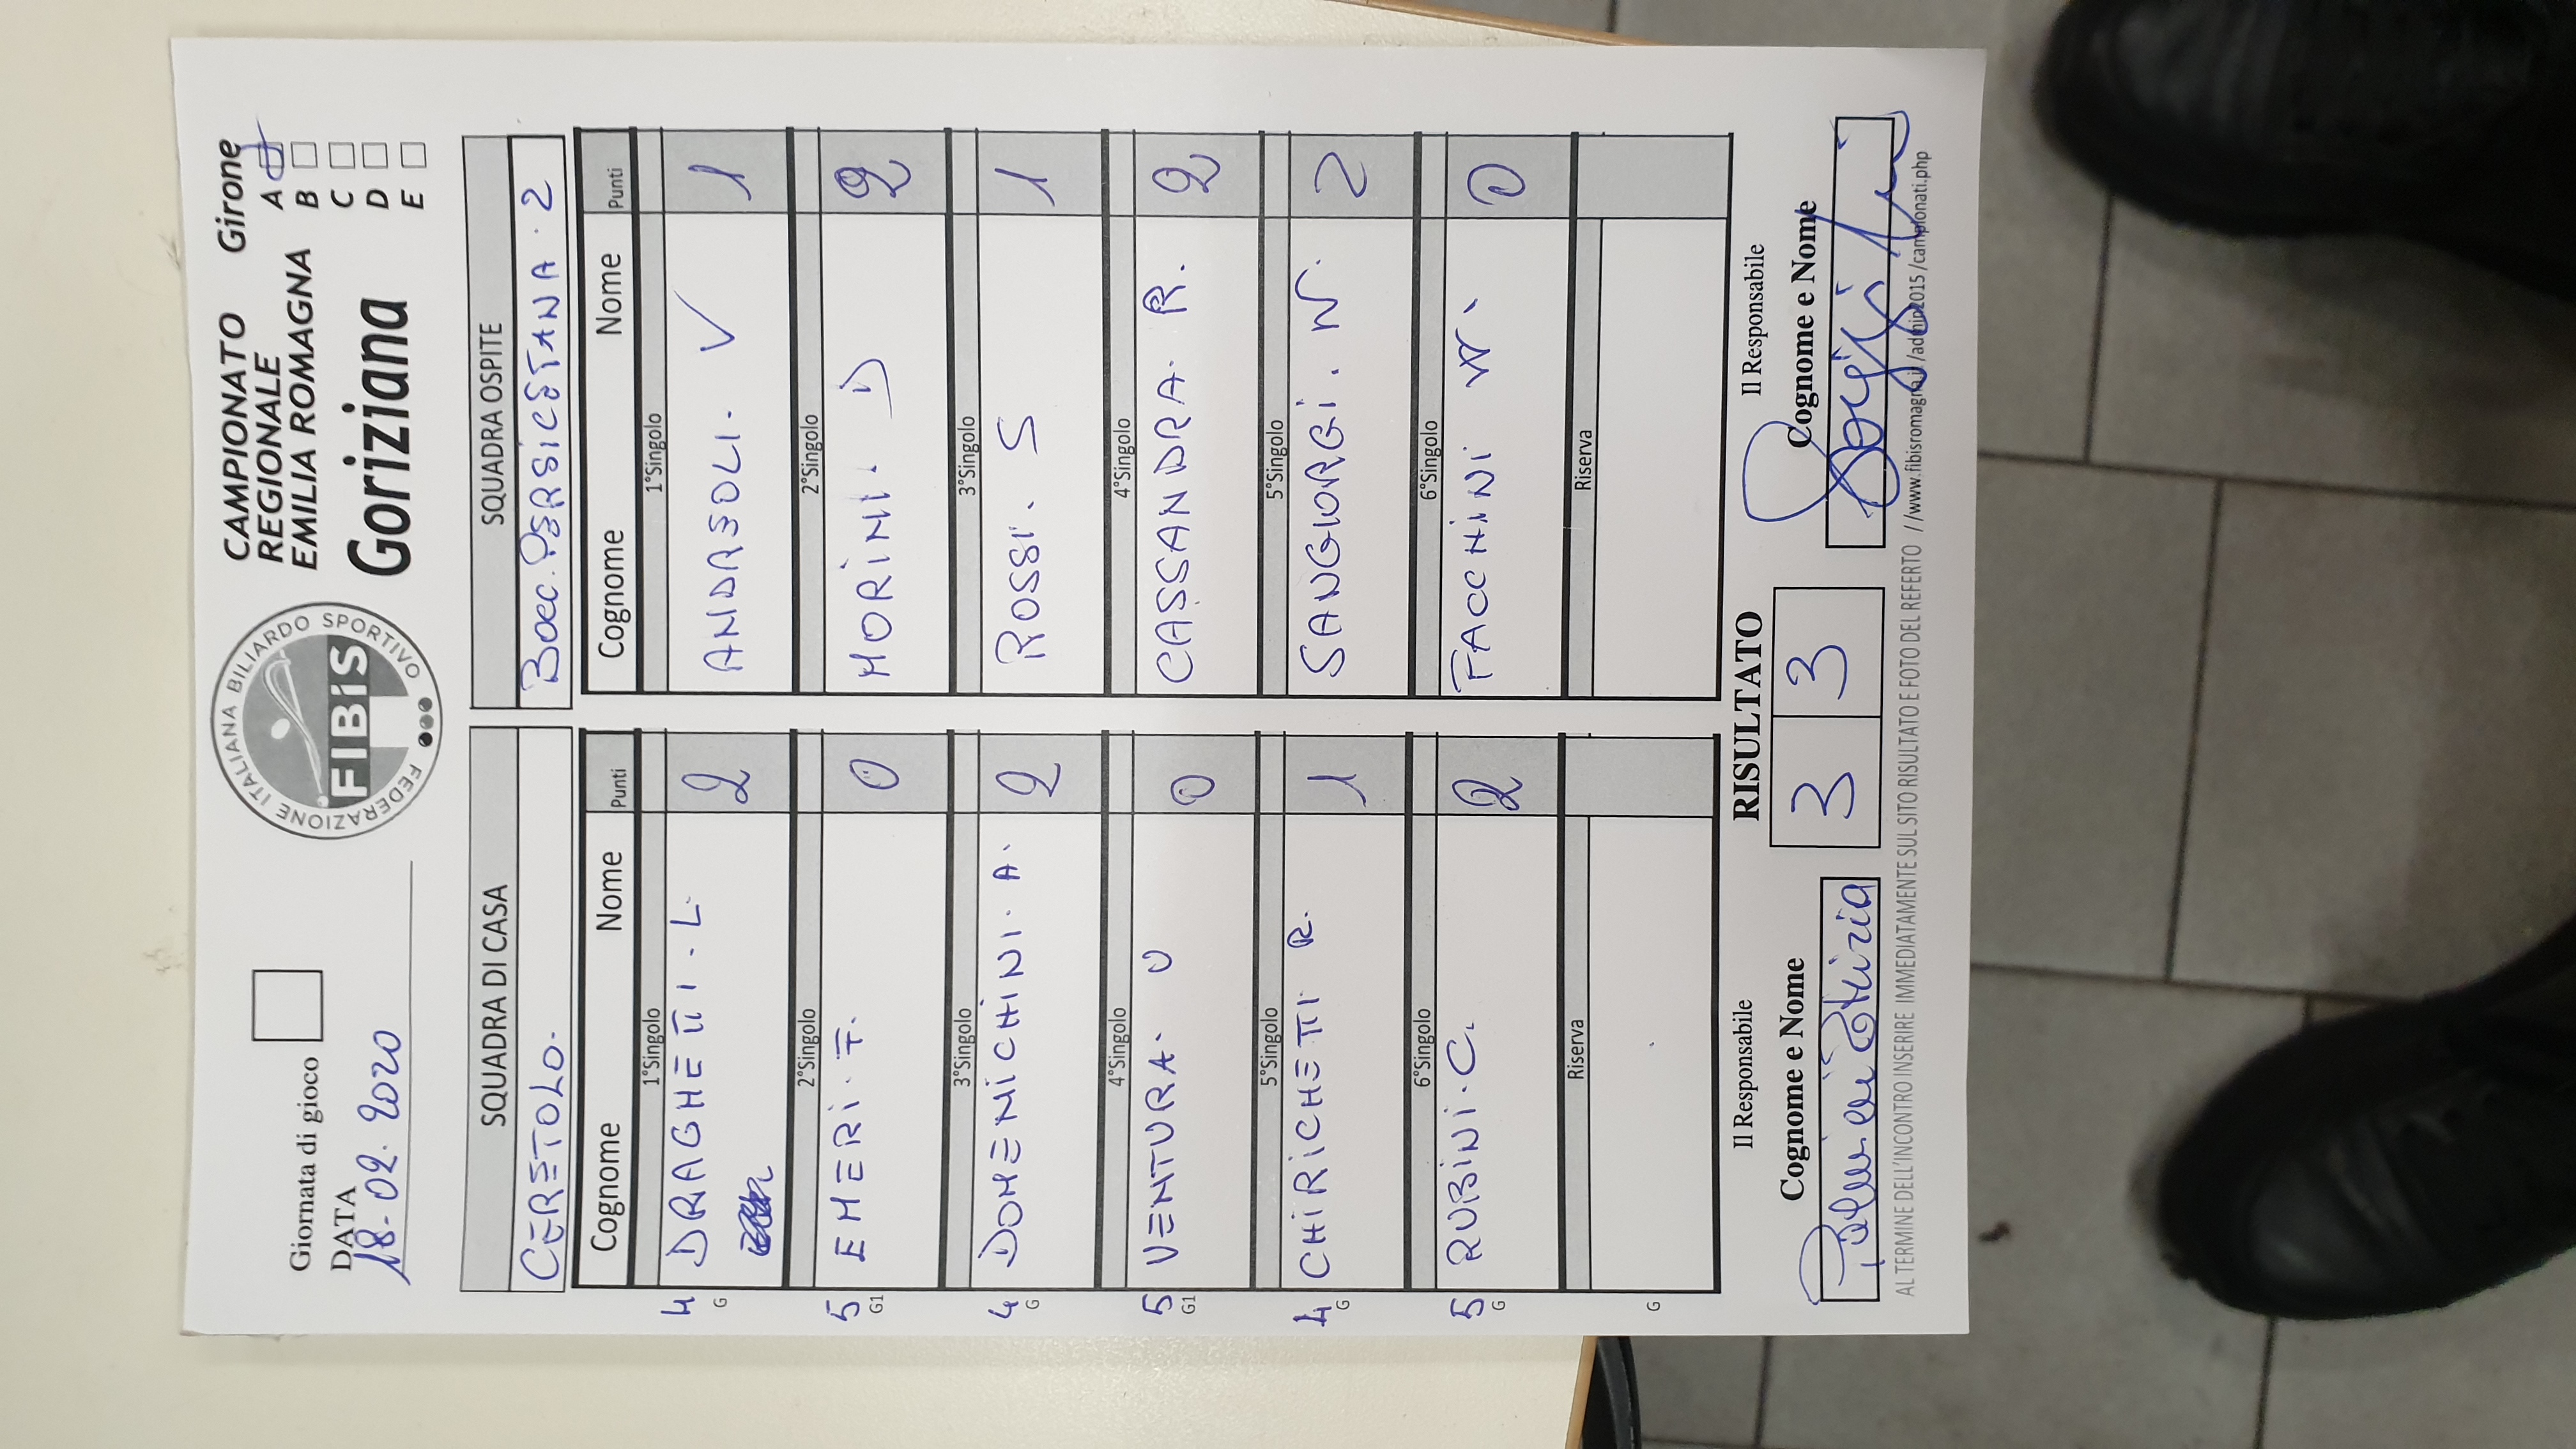 Giornata di gioco
DATA
18-02-2020
FEDERAZIONE ITALIANA BILIARDO SPORTIVO
FIBiS
CAMPIONATO
REGIONALE
EMILIA ROMAGNA
Goriziana
Girone
A
B
C
D
E
SQUADRA DI CASA
CERETOLO.
SQUADRA OSPITE
BOCC. PERSICETANA. 2
Cognome Nome Punti
Cognome Nome Punti
1°Singolo
1°Singolo
4 G DRAGHETTI. L. 2
ANDREOLI. V 1
2°Singolo
2°Singolo
5 G1 EMERI. F. 0
MORINI. D 2
3°Singolo
3°Singolo
4 G DOMENICHINI. A. 2
ROSSI. S 1
4°Singolo
4°Singolo
5 G1 VENTURA. O 0
CASSANDRA. R. 2
5°Singolo
5°Singolo
4 G CHIRICHETTI R. 1
SANGIORGI. W. 2
6°Singolo
6°Singolo
5 G RUBINI. C. 2
FACCHINI W. 0
Riserva
Riserva
G
Il Responsabile
RISULTATO
Il Responsabile
Cognome e Nome
3 3
Cognome e Nome
AL TERMINE DELL'INCONTRO INSERIRE IMMEDIATAMENTE SUL SITO RISULTATO E FOTO DEL REFERTO //www.fibisromagna.it/admin2015/campionati.php